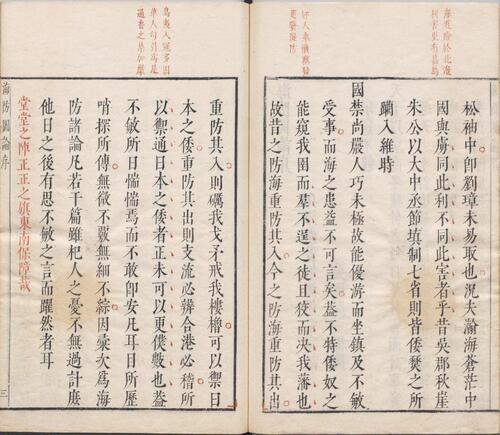 利害更有甚焉
松袖中卽劉璋未易取也況夫瀚海蒼茫中
國與虜同此利不同此害者乎昔吳郡秋崖
朱公以大中丞節填制七省則皆倭燹之所
躪入維時
國禁尚嚴人巧未極故能優游而坐鎮及不敏
受事而海之患益不可言矣葢不特倭奴之
能窺我圉而羣不逞之徒且從而決我藩也
故昔之防海重防其入今之防海重防其出
通番之禁加嚴
重防其入則礪我戈矛戒我樓櫓可以禦日
本之倭重防其出則支流必辨合港必稽所
以禦通日本之倭者正未可以更僕數也葢
不敏所日惴惴焉而不敢卽安凡耳目所歷
哨探所傳無微不覈無細不綜因彙次為海
防諸論凡若干篇雖杞人之憂不無過計庶
他日之後有思不敏之言而躍然者耳
堂堂之陣正正之旗東南保障哉
海防圖論序
三